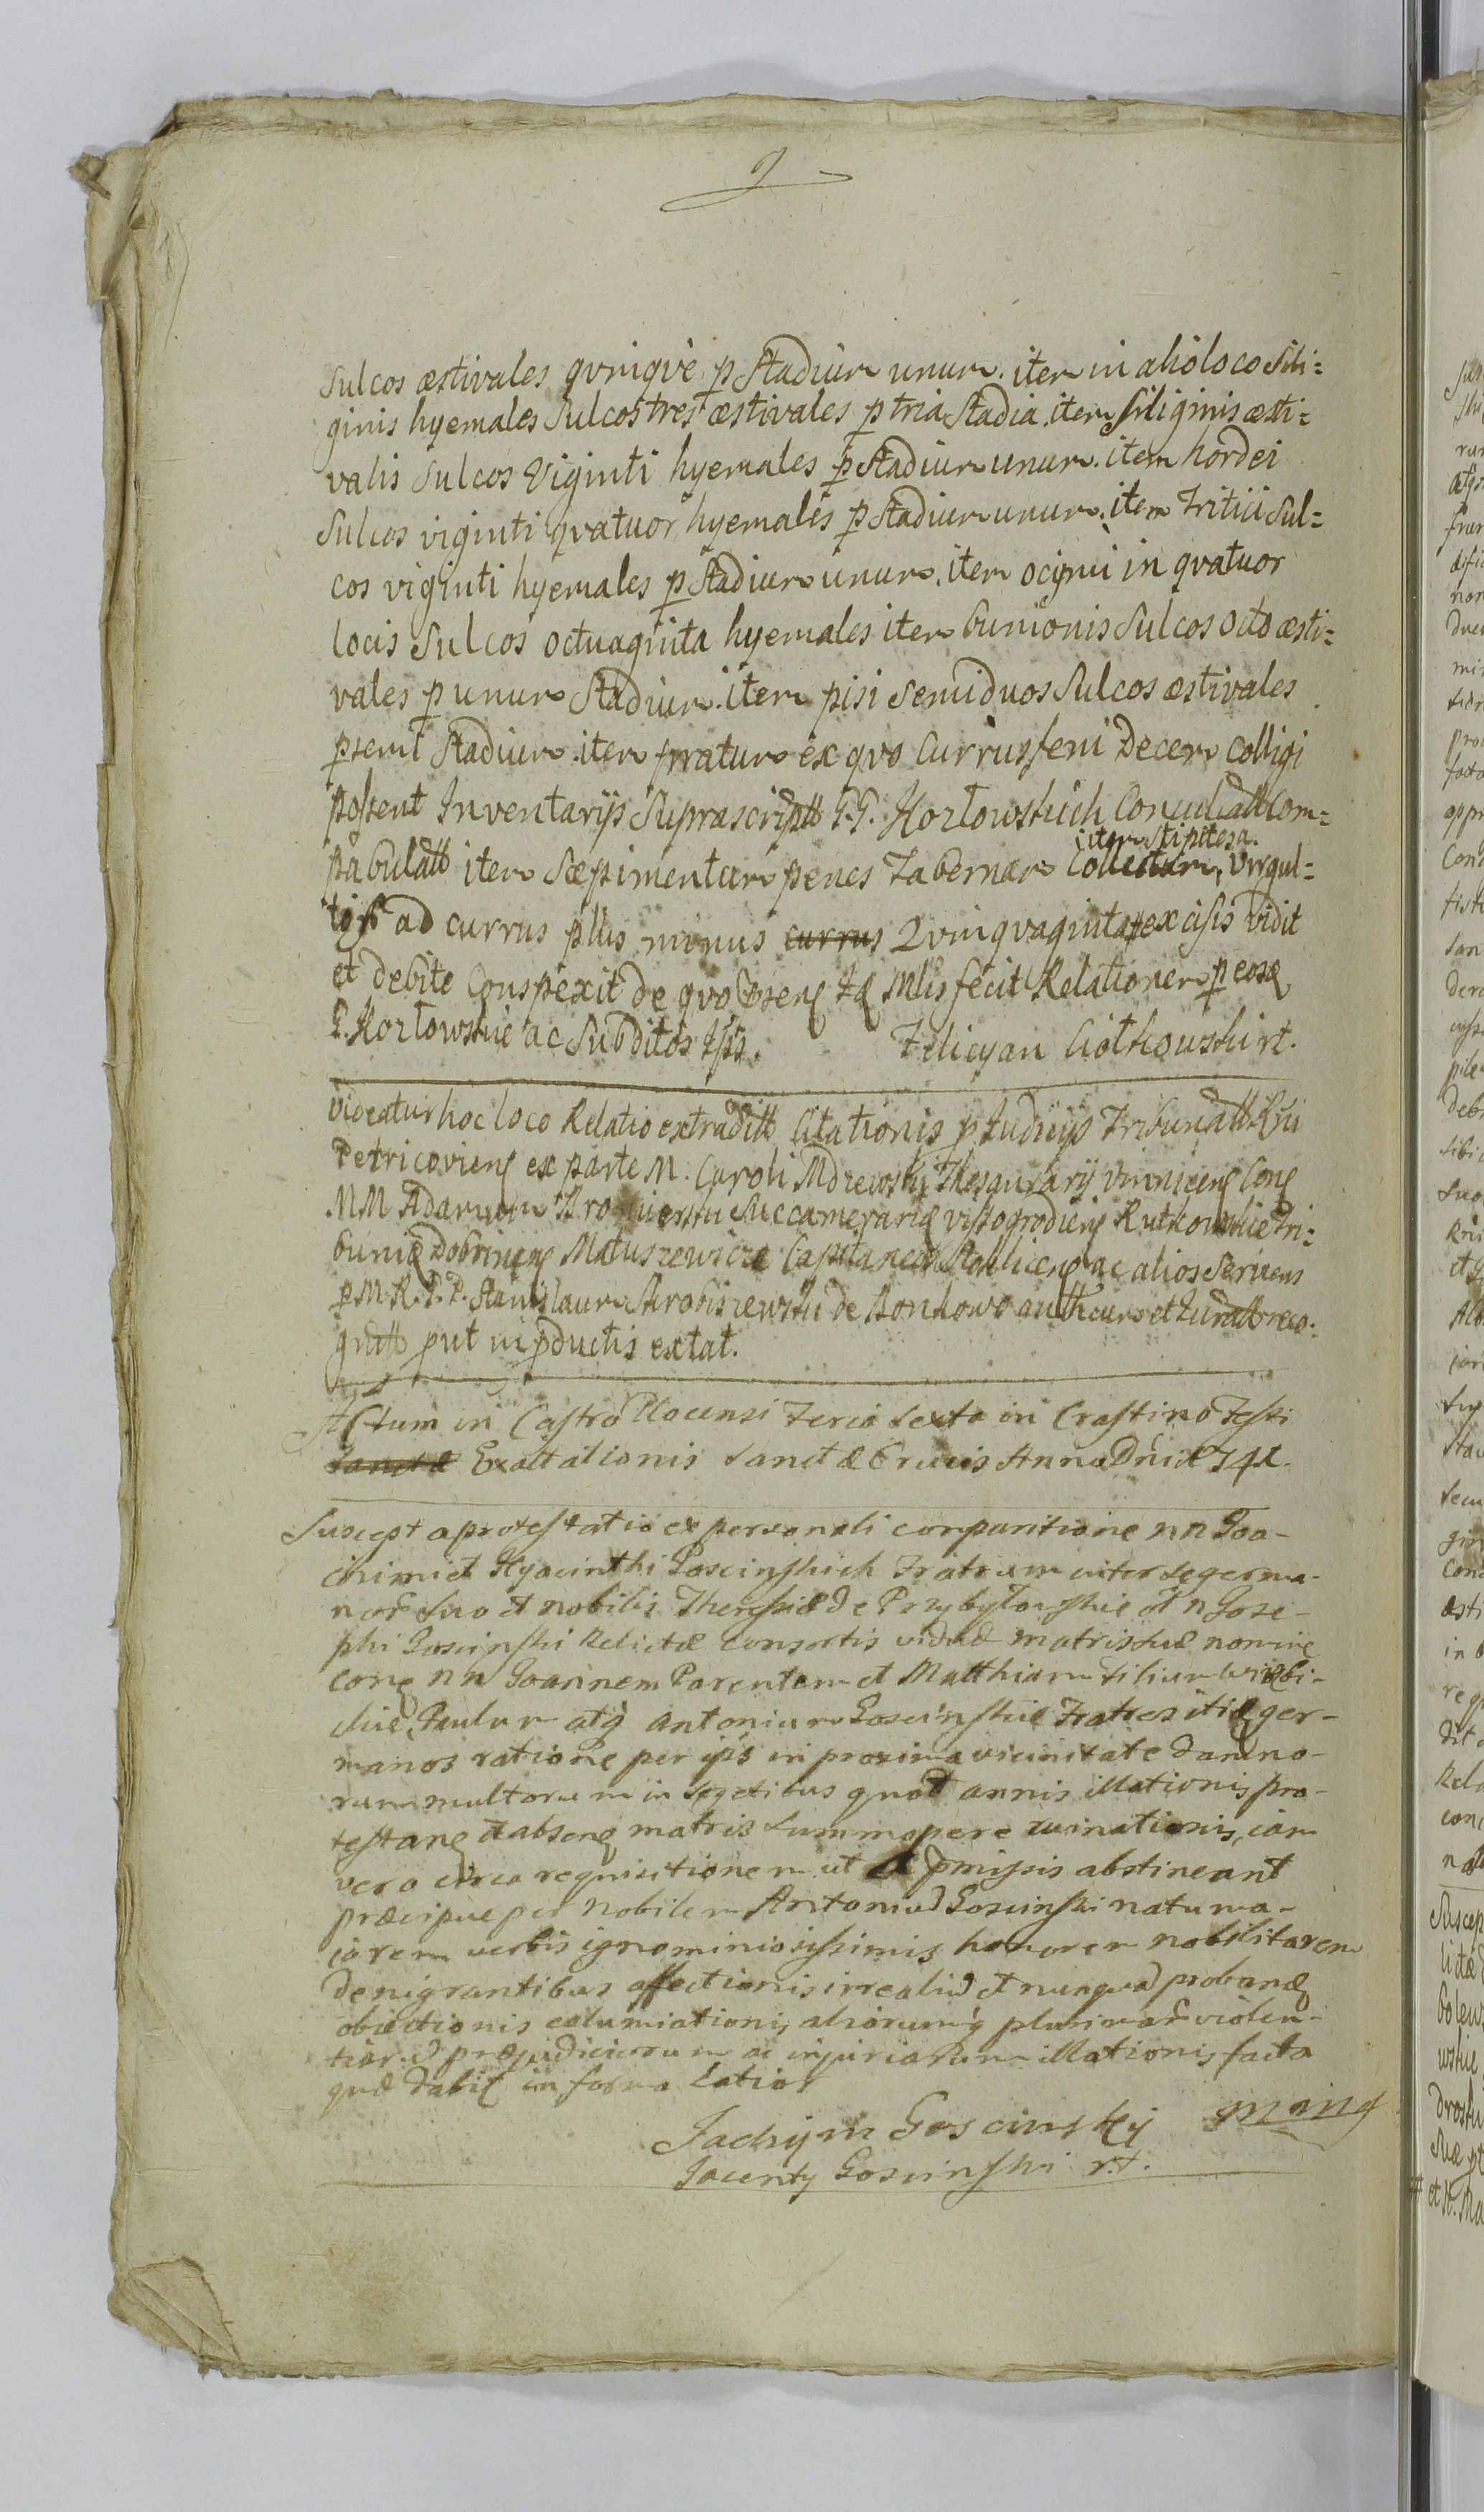 Sulcos æstivales qvinqve p Stadium unum. item in alio loco Sili=
ginis hyemales Sulcos tres æstivales p tria Stadia. item Siliginis æsti=
valis Sulcos Viginti hyemales p Stadium unum. item hordei
Sulcos viginti qvatuor hyemales p Stadium unum. item Tritici Sul=
cos viginti hyemales p Stadium unum. item ocymi in qvatuor
locis Sulcos octuaginta hyemales item bunionis Sulcos octo æsti=
vales p unum Stadium. item pisi Semiduos Sulcos æstivales
p semi Stadium. item pratum ex qvo Currus feni Decem Colligi
possent Inventarijs Suprascriptt G.G. Kozłowskich Conculcatt Com=
pabulatt item Sæpimentum penes Tabernam
item Stipites a.
Collectum, virgul=
tis ad currus plus minus currus Qvinqvaginta excisis vidit
et debite Conspexit de qvo fecit Relationem p eosd
G. Kozłowskie ac Subditos Ipsis. Felicyan Ciołkowski rt.
Videatur hoc loco Relatio extraditt Citationis p Judicijs Tribunatt
Petricovien ex parte M. Caroli Thesaurarij Con
MM Adamum Succamerarium vissogrodien Rutkowskie Tri=
bunum Dobrinen Matuszewicz Capitaneum ac alios Serviens
p M. R. P. P. Stanislaum de authcum et Juratt reco=
gnitt put in pductis extat.
Actum in Castro Plocensi Feria Sexta in Crastino Festi
Sanctæ Exaltationis Sanctæ Crucis Anno Dni
Suscepta protestatio ex personali comparitione nn Joa-
chimi et Hyacinthi Goscinskich Fratrum inter se germa-
nor Suo et nobilis Theressiæ de Przybyłowskie olt n Jose-
phi Goscinski Relictæ consortis viduæ matris suæ nomine
con nn Joannem Parentem et Matthiam Filium
Paulum atq Antonium Goscinskie Fratres itid ger-
manos ratione per ips in proxima vicinitate damno-
rum multorum in segetibus quot annis illationis pro-
testan et absen matris summopere ruinationis, iam
vero circa requisitionem ut a pmissis abstineant
præcipue per Nobilem Antonium Goscinski natu ma-
iorem verbis ignominiosissimis honorem nobilitarem
denigrantibus affectionis irrealium et nunquam proband
obiectionis calumiationis, aliorumq plurimar violen-
tiarum præjudiciorum ac injuriarum illationis facta
quæ dabit in forma latior
Jachijm Goscinskij mpmg
Jacenty Goscinski rt.